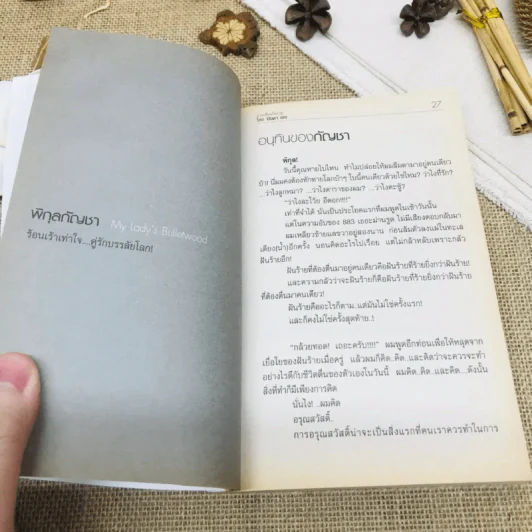 พิกุลกัญชา
My Lady's Bulletwood
ร้อนเร้าเท่าใจ...คู่รักบรรลัยโลก!
27
อนุทินของกัญชา
พิกุล!
วันนี้คุณหายไปไหน ทำไมปล่อยให้ผมลืมตามาอยู่คนเดียว
นี่ผมคงต้องทักทายโลกบ้าๆ ใบนี้คนเดียวด้วยใช่ไหม? ว่าไงที่รัก?
...ว่าไงลูกหมา? ...ว่าไงดาราของผม? ...ว่าไงคะซู้?
"ว่าไงละไว้ย อีดอก!!!"
เท่าที่จำได้ นั่นเป็นประโยคแรกที่ผมพูดในเช้าวันนั้น
แต่ในความอับของ 683 เถอะผ่านรูด ไม่มีเสียงตอบกลับมา
ผมเหลียวซ้ายแลขวาอยู่สองนาน ก่อนล้มตัวลงแผ่ในทะเล
เตียง(น้ำ)อีกครั้ง นอนคิดอะไรไปเรื่อย แต่ไม่กล้าหลับเพราะกลัว
ฝันร้ายอีก!
ฝันร้ายที่ต้องตื่นมาอยู่คนเดียวคือฝันร้ายที่ร้ายยิ่งกว่าฝันร้าย!
และความกลัวว่าจะฝันร้ายก็คือฝันร้ายที่ร้ายยิ่งกว่าฝันร้าย
ที่ต้องตื่นมาคนเดียว!
ฝันร้ายคืออะไรก็ตาม..แต่มันไม่ใช่ครั้งแรก!
และก็คงไม่ใช่ครั้งสุดท้าย..!
"กล้วยทอด! เถอะครับ!!!!" ผมพูดอีกท่อนเพื่อให้หลุดจาก
เยื่อใยของฝันร้ายเมื่อครู่ แล้วผมก็คิด..คิด..และคิดว่าควรจะทำ
อย่างไรดีกับชีวิตตื่นของตัวเองในวันนี้ ผมคิด..คิด..และคิด....ดังนั้น
สิ่งที่ทำก็มีเพียงการคิด
นั่นไง! ..ผมคิด
อรุณสวัสดิ์..
การอรุณสวัสดิ์น่าจะเป็นสิ่งแรกที่คนเราควรทำในการ